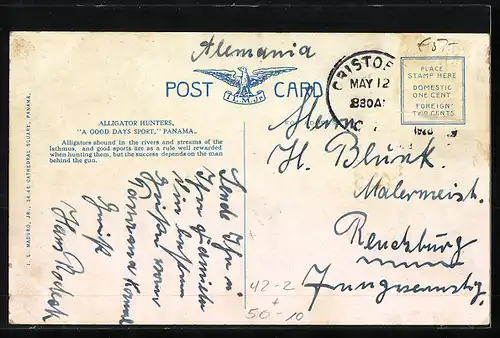 Alemania
€57-
CRISTOB
MAY 12
830A
POST CARD
I.L.M.Jr.
PLACE
STAMP HERE
DOMESTIC
ONE CENT
FOREIGN
TWO CENTS
ALLIGATOR HUNTERS,
"A GOOD DAYS SPORT," PANAMA.
Alligators abound in the rivers and streams of the
Isthmus, and good sports are as a rule well rewarded
when hunting them, but the success depends on the man
behind the gun.
I. L. MADURO, JR., 34-46 CATHEDRAL SQUARE, PANAMA.
Herrn
H. Blunk
Malermeist.
Rendsburg
Sende Ihnen
Ihrer Familie
die besten
Grüße vom
Panama Kanal
Gruß
Hans
42-2
+
50-10